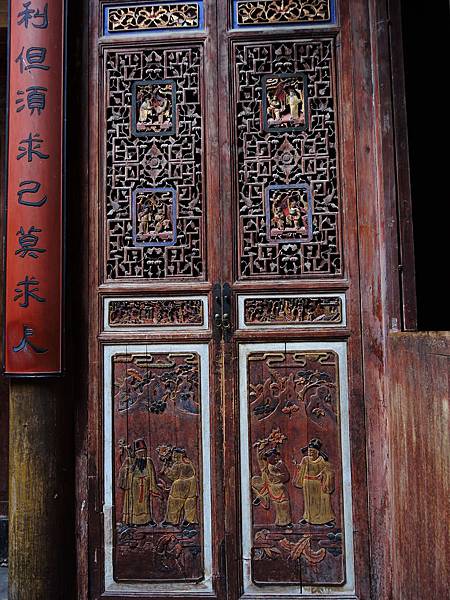 利但須求己莫求人